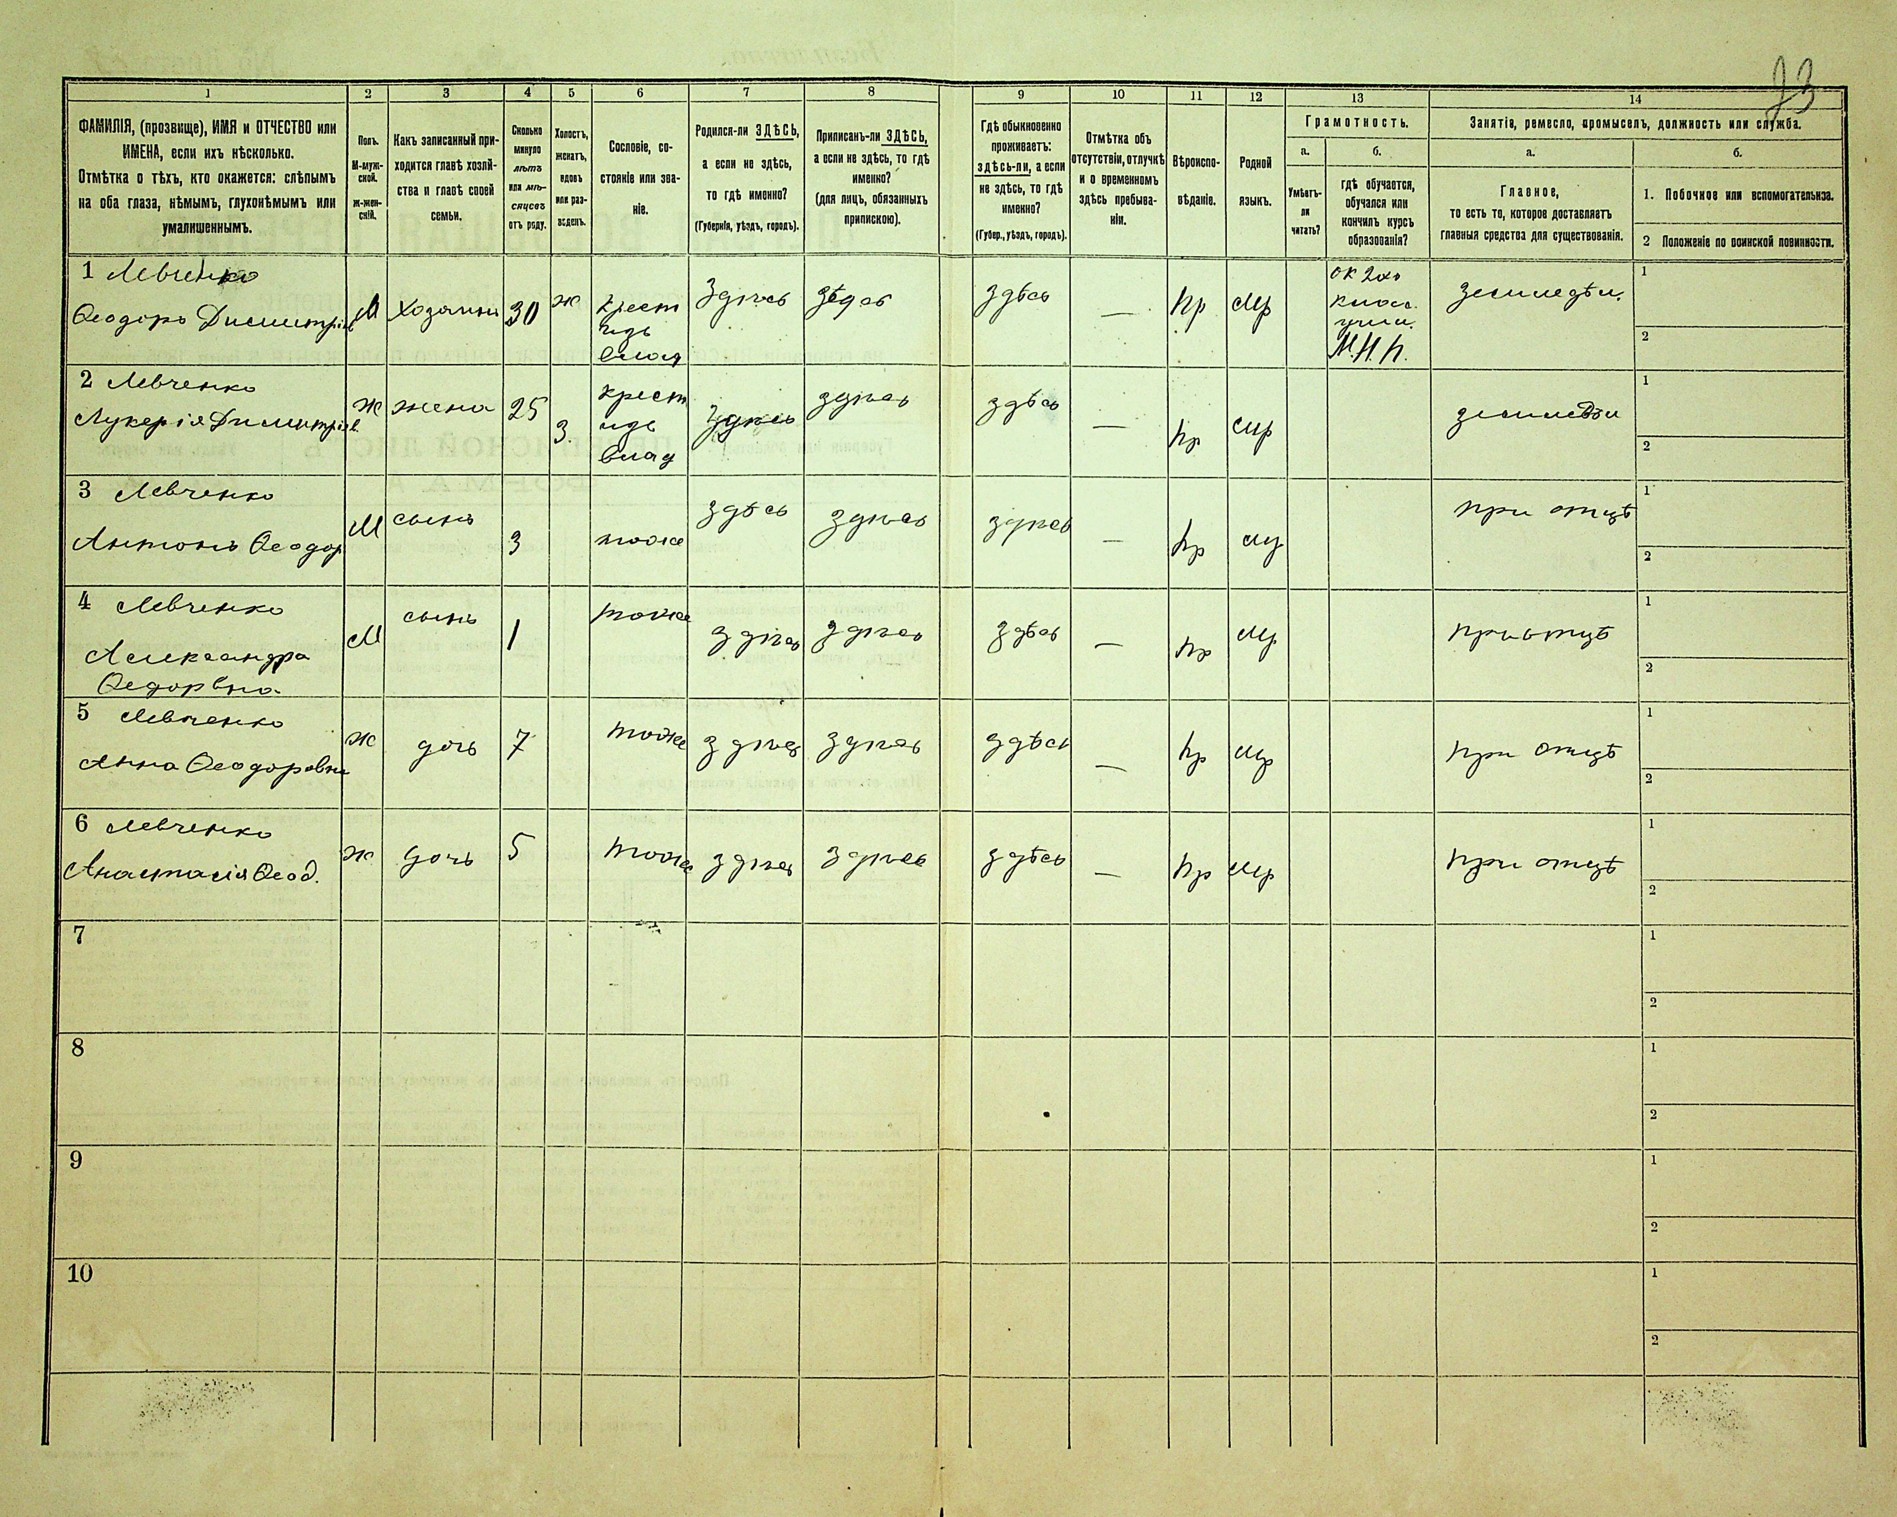 23
1 2 3 4 5 6 7 8 9 10 11 12 13 14
ФАМИЛІЯ, (прозвище), ИМЯ и ОТЧЕСТВО или
ИМЕНА, если ихъ нѣсколько.
Отмѣтка о тѣхъ, кто окажется: слѣпымъ
на оба глаза, нѣмымъ, глухонѣмымъ или
умалишеннымъ.
Полъ.
М-муж-
ской.
ж-жен-
скій.
Какъ записанный при-
ходится главѣ хозяй-
ства и главѣ своей
семьи.
Сколько
минуло
лѣтъ
или мѣ-
сяцевъ
отъ роду.
Холостъ,
женатъ,
вдовъ
или раз-
веденъ.
Сословіе, со-
стояніе или зва-
ніе.
Родился-ли ЗДѢСЬ,
а если не здѣсь,
то гдѣ именно?
(Губернія, уѣздъ, городъ).
Приписанъ-ли ЗДѢСЬ,
а если не здѣсь, то гдѣ
именно?
(для лицъ, обязанныхъ
припискою).
Гдѣ обыкновенно
проживаетъ:
здѣсь-ли, а если
не здѣсь, то гдѣ
именно?
(Губер., уѣздъ, городъ).
Отмѣтка объ
отсутствіи, отлучкѣ
и о временномъ
здѣсь пребыва-
ніи.
Вѣроиспо-
вѣданіе.
Родной
языкъ.
Грамотность.
а.
Умѣетъ-
ли
читать?
б.
гдѣ обучается,
обучался или
кончилъ курсъ
образованія?
Занятіе, ремесло, промыселъ, должность или служба.
а.
Главное,
то есть то, которое доставляетъ
главныя средства для существованія.
б.
1. Побочное или вспомогательное.
2 Положеніе по воинской повинности.
1 Левченко
Ѳеодоръ Димитріев
М Хозяинъ 30 ж
крест
изъ
влад
здѣсь здѣсь здѣсь — пр мр
ок 2хъ
класс.
учил.
М.Н.П.
земледѣл.
1
2
2 Левченко
Лукерія Димитріев
Ж жена 25 з.
крест
изъ
влад
здѣсь здѣсь здѣсь — пр мр земледѣл
1
2
3 Левченко
Антонъ Ѳеодор
М сынъ 3 тоже здѣсь здѣсь здѣсь — пр мр при отцѣ
1
2
4 Левченко
Александра
Ѳедорвна
М сынъ 1 тоже здѣсь здѣсь здѣсь — пр мр при отцѣ
1
2
5 Левченко
Анна Ѳеодоровна
Ж дочь 7 тоже здѣсь здѣсь здѣсь — пр мр при отцѣ
1
2
6 Левченко
Анастасія Ѳеод.
Ж дочь 5 тоже здѣсь здѣсь здѣсь — пр мр при отцѣ
1
2
7
1
2
8
1
2
9
1
2
10
1
2